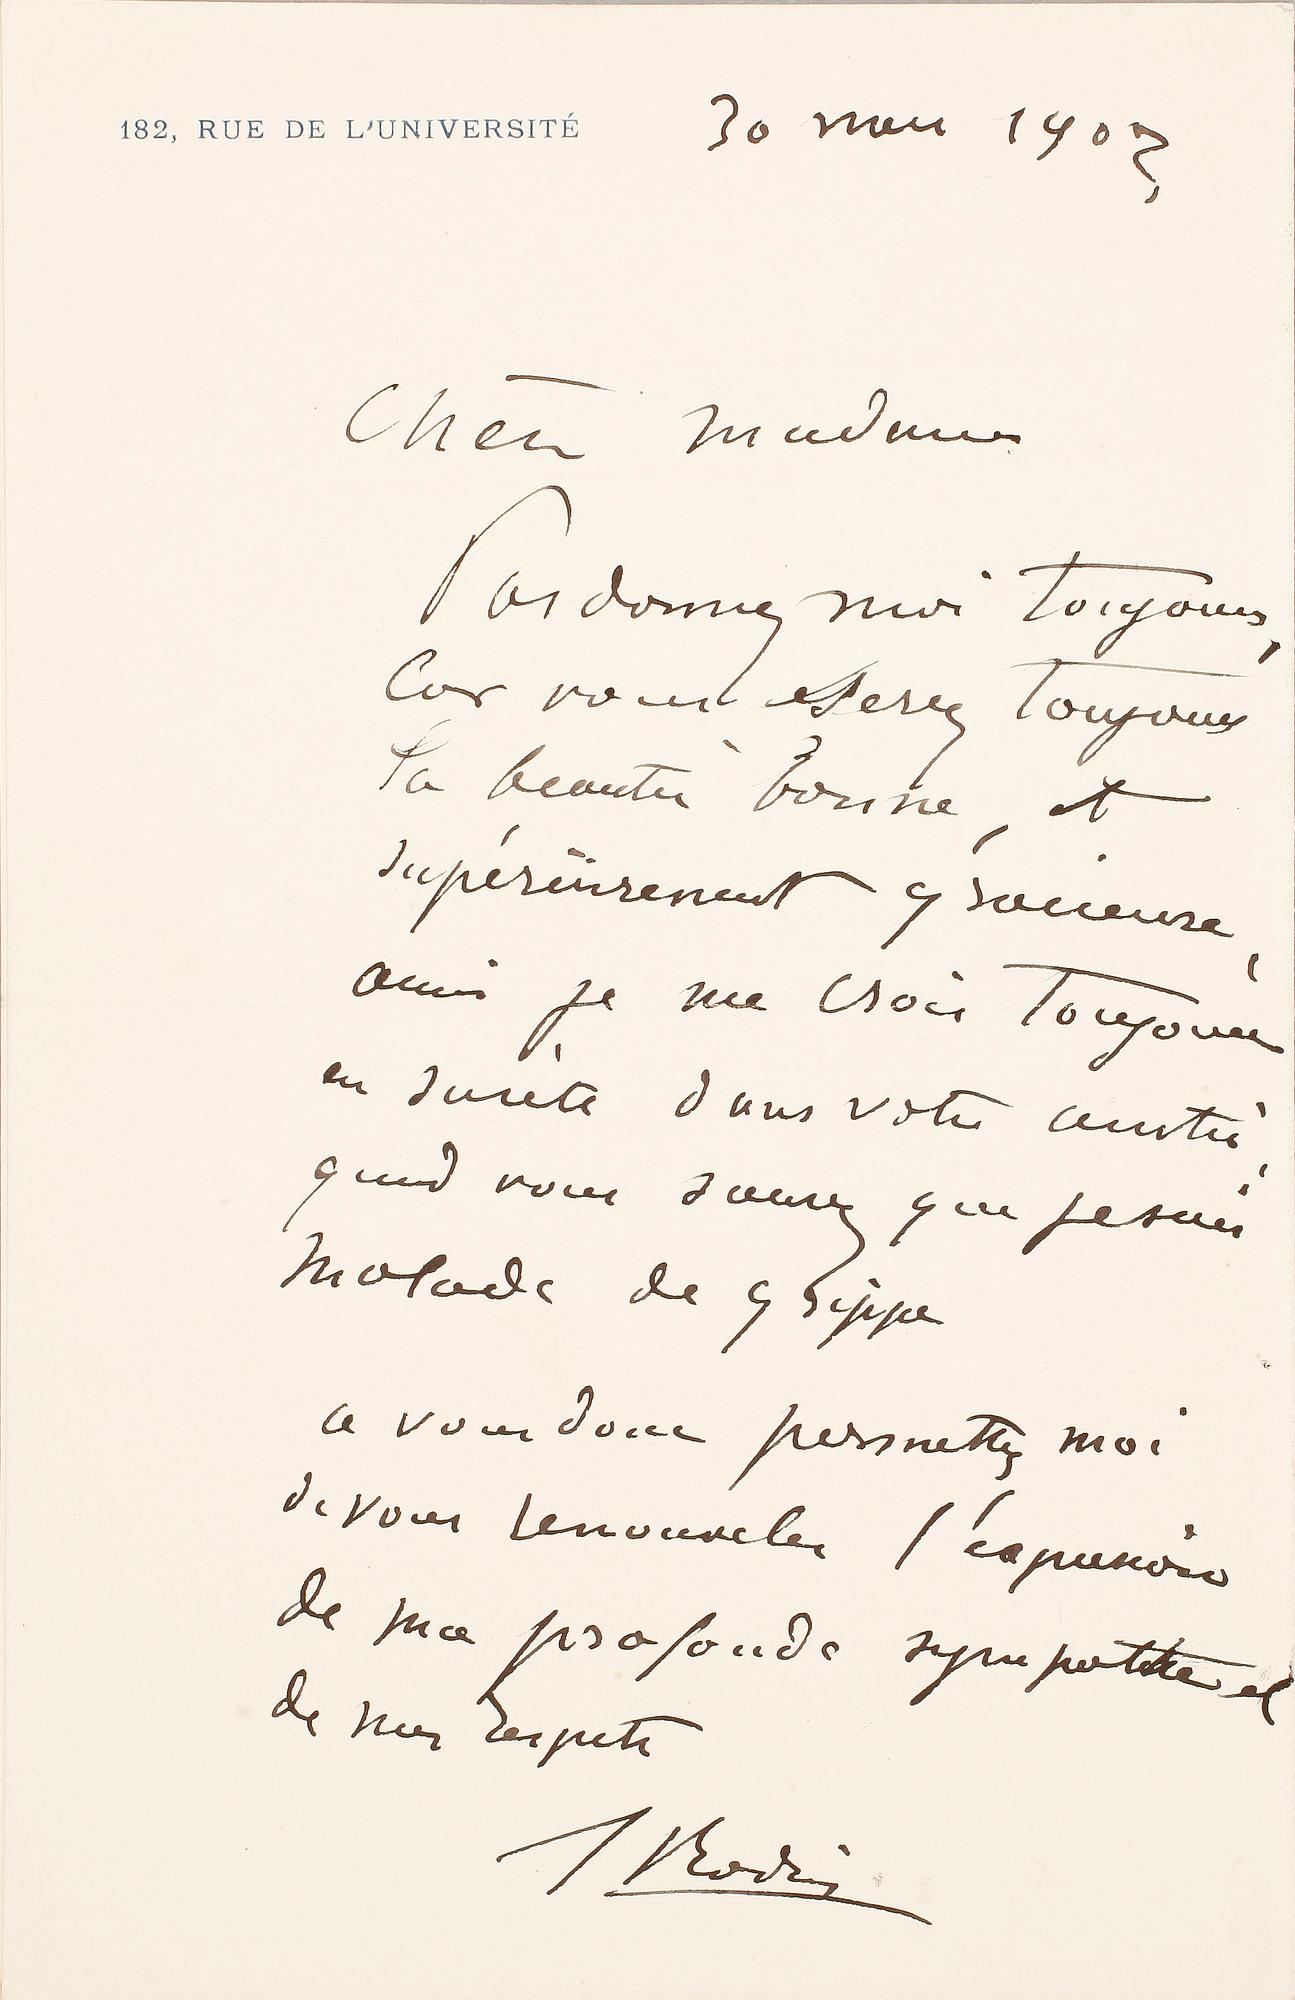 182, RUE DE L'UNIVERSITÉ
30 mars 1903
Chère madame
Pardonnez moi toujours,
Car vous serez toujours
la beauté bonne, et
supérieurement gracieuse,
aussi je me crois toujours
en sureté dans votre amitié,
quand vous saurez que je suis
malade de grippe
a vous donc permettez moi
de vous renouveler l'expression
de ma profonde sympathie et
de mes respects
A Rodin